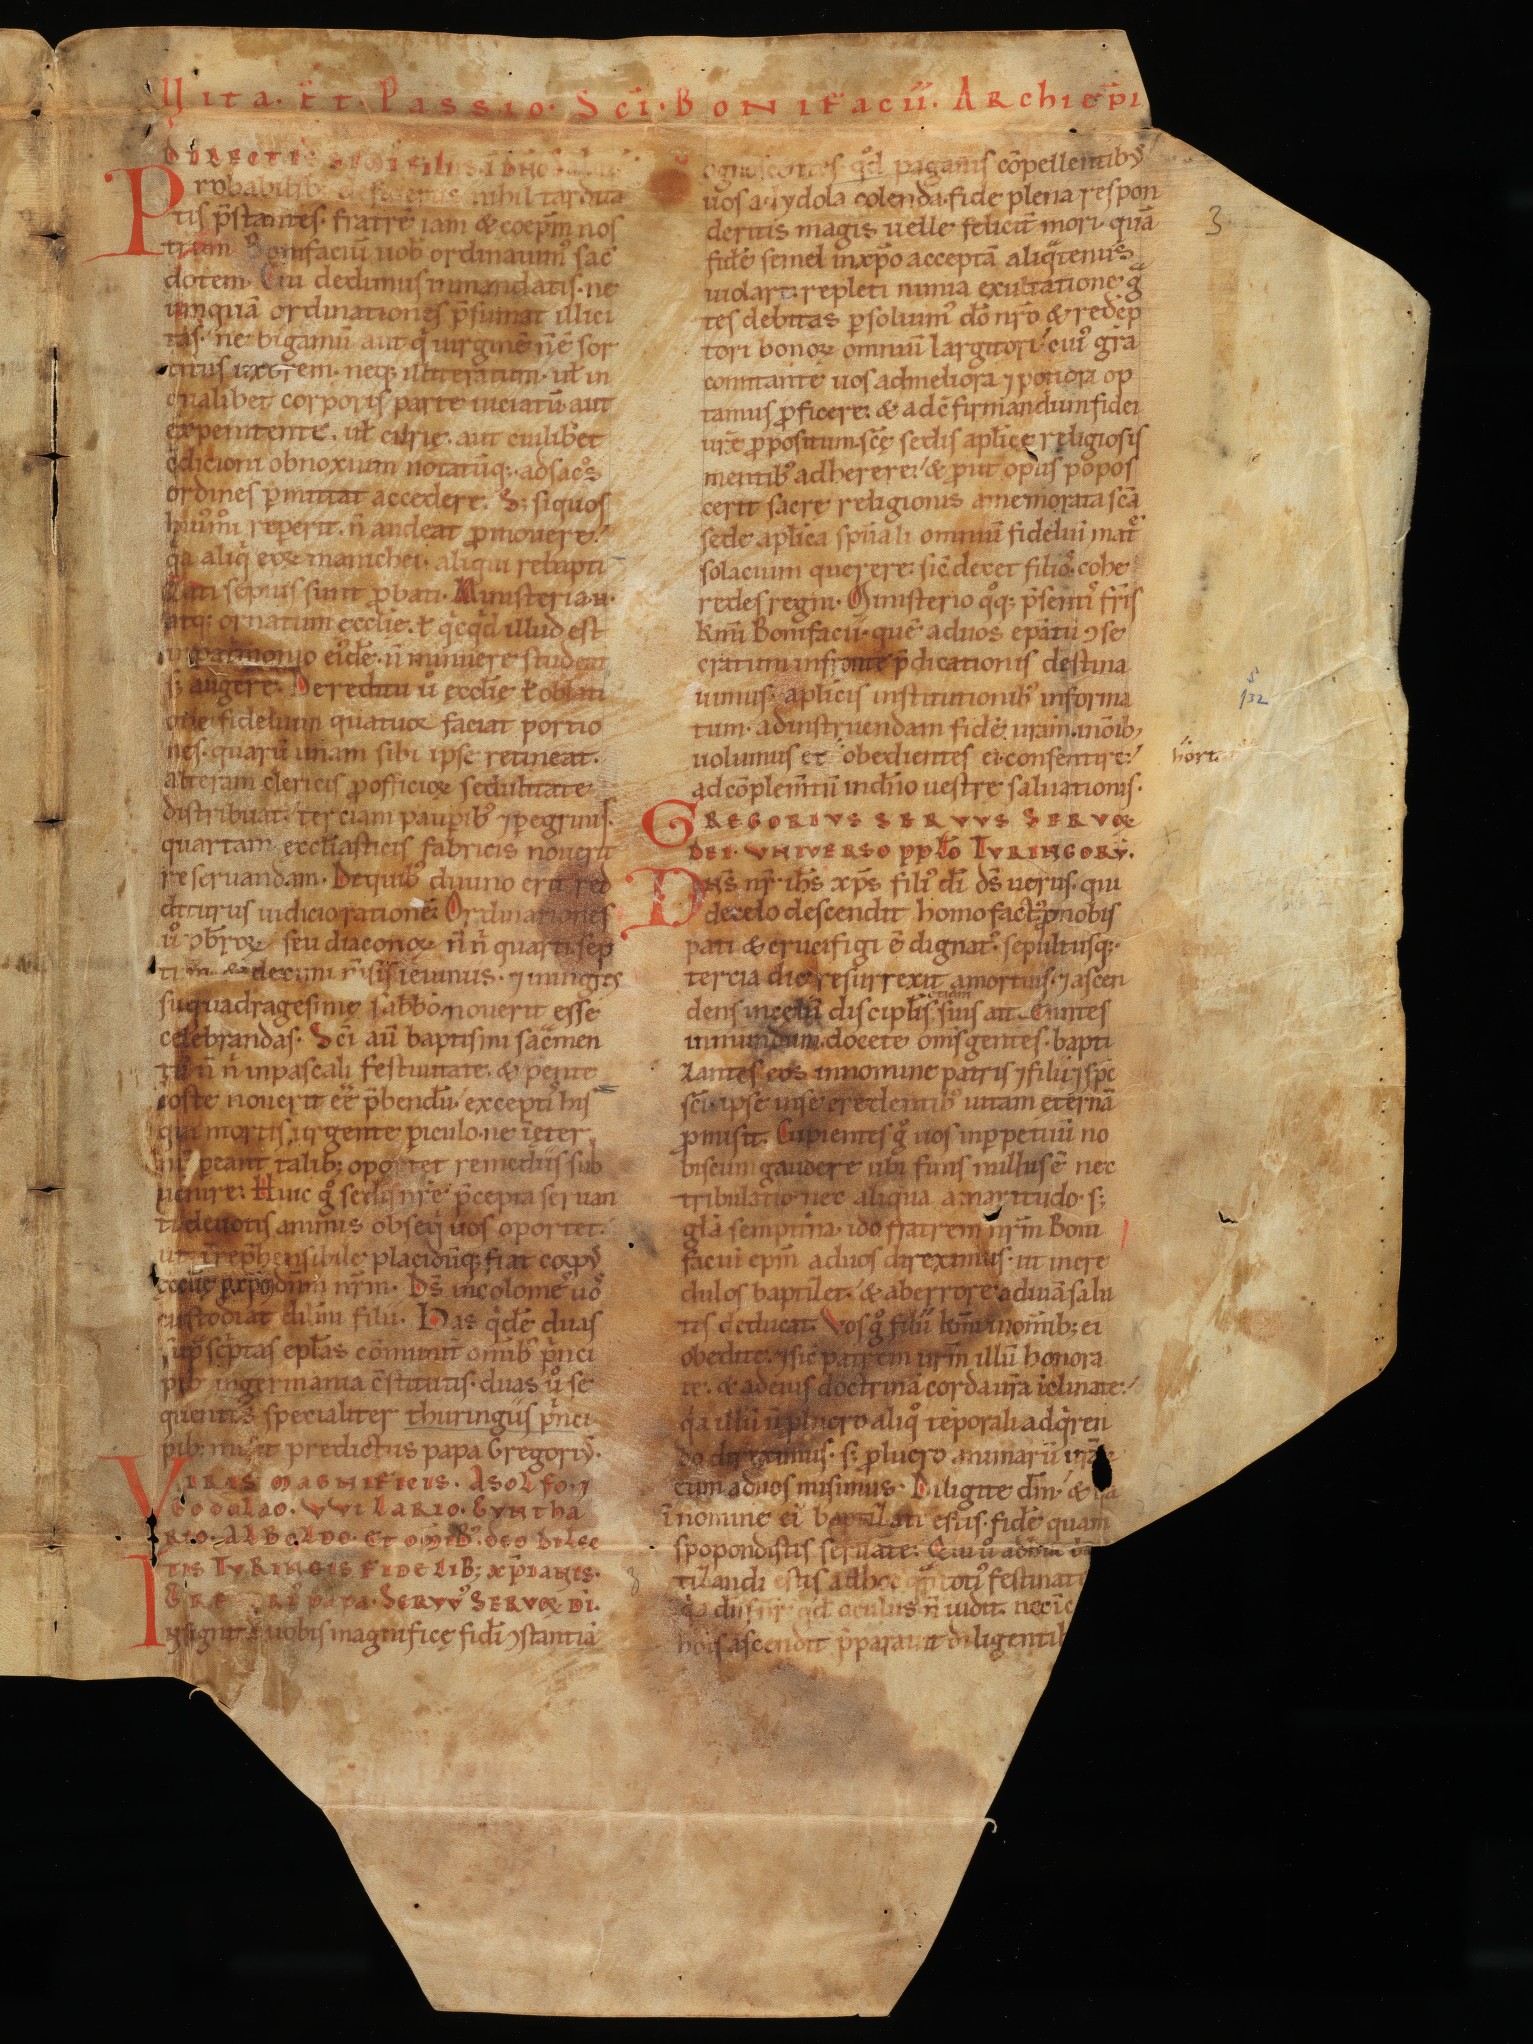 Vita. et. Passio. Sci. Bonifacii. Archiep̄i
Probabilib; desideriis nihil tardita
tis p̄stantes. fratrē iam & coep̄m nos
trum Bonifaciū uob̾ ordinauim̾ sac̾
dotem. Cui dedimus in mandatis. ne
umquā ordinationes p̄sumat illici
tas. ne bigamū aut q̄ uirginē n̄ ē sor
titus uxorem. neq; illiteratum. ul̄ in
qualibet corporis parte uiciatū. aut
expenitente. ul̄ curie. aut cuilibet
ꝯdicioni obnoxium notatūq;. ad sac̾s
ordines p̄mittat accedere. S; si quos
hui̾m̾i repperit. n̄ audeat ꝓmouere.
q̾a aliq̾ eoꝝ manichei. aliqui rebapti
zati sepius sunt ꝓbati. Ministeria u̾
atq; ornatum ecclīe. ł q̾cq̾d illud est
in patrimonio ei̾dē. n̄ minuere studeat
s; augere. De reditu u̾ ecclīe ł oblati
one fidelium quatuoꝝ faciat portio
nes. quarū unam sibi ipse retineat.
alteram clericis ꝓ officioꝝ sedulitate
distribuat. terciam paup̄ib̾ ⁊ p̄egrinis.
quartam eccl̄iasticis fabricis nouerit
reseruandam. De quib̾ diuino erit red
diturus iudicio rationē. Ordinationes
u̾ p̄br̄oꝝ seu diaconoꝝ n̄ n̾ quarti sep
timi & decimi m̄sis ieiuniis. ⁊ in ingres
su quadragesime sabbo nouerit esse
celebrandas. Sc̄i aū baptismi sac̾men
tū n̄ n̾ in pascali festiuitate. & pente
coste nouerit eē p̄bendū. exceptis his
qui mortis urgente piculo. ne ī eter
nū peant. talib; oportet remediis sub
uenire. Huic g̾ sedis nr̄e p̄cepta seruan
ti deuotis animis obseq̾ uos oportet.
ut īrep̄hensibile placidūq; fiat corp̾
ecclīe p̄ xp̄m dn̄m nr̄m. Dс̄ incolomē uo̾
custodiat dil̄mi filii. Has q̾dē duas
sup̄sc̄ptas epl̄as communit̾ omīb̾ p̄nci
pib̾ in germania ꝯstitutis. duas u̾ se
quentes specialiter thuringiis p̄nci
pib; misit predictus papa Gregori̾.
Viris magnificis. Asolfo. ⁊
Godolao. Vvilario. Gvntha
rio. Alboldo. et omīb̾. deo dilec
tis Tvringis fidelib; xp̄ianis.
Gregori̾ papa. Servv̾ Servoꝝ Di.
Insignitā uobis magnifice fidi ꝯstantiā
cognoscentes. q̾d paganis cōpellentib̾
uos ad ydola colenda. fide plena respon
deritis magis uelle felicit̾ mori. quā
fidē semel in xp̄o acceptā aliq̾tenus
uiolari. repleti nimia exultatione g̾
tes debitas psoluim̾ dn̄o nr̄o & redēp
tori bonoꝝ omniū largitori. cui̾ gr̄a
comitante uos ad meliora ⁊ potiora op
tamus ꝓficere. & ad cōfirmandum fidei
ur̄e ꝓpositum. sc̄e sedis apl̄ice religiosis
mentib̾ adherere. & ꝓut opus popos
cerit sacre religionis a memorata sc̄a
sede apl̄ica spūali omniū fideliū mat̾
solacium querere. sic̄ decet filio̾s cohe
redes regni. Ministerio q̾q; p̄senti̾ fr̄is
kmi Bonifacii. quē ad uos ep̄atū ꝯse
cratum in fronte p̄dicationis destina
uimus. apl̄icis institutionib̾ informa
tum. ad instruendam fidē ur̄am. in om̄ib;
uolumus et obedientes ei consentire.
ad cōplem̄tū in dn̄o uestre saluationis.
Gregorivs servvs servoꝝ
dei. vniverso pplo Tvringorv̄.
Dn̄s nr̄ ih̄s xp̄s fili̾ dī ds̄ uerus. qui
de celo descendit homo fact̾ ꝓ nobis
pati & crucifigi ē dignat̾. sepultusq;.
tercia die resurrexit a mortuis. ⁊ ascen
dens in celū discipl̄is suis ait. Euntes
in mundum. docete om̄s gentes. bapti
zantes eos in nomine patris ⁊ filii ⁊ sp̄c
sc̄i. ipse in se credentib̾ uitam eternā
ꝓmisit. Cupientes g̾ uos in ppetuū no
biscum gaudere ubi finis nullus ē nec
tribulatio. nec aliqua amaritudo. s;
gl̄a sempiterna. ido fratrem nr̄m Boni
facium ep̄m ad uos direximus. ut incre
dulos baptizet. & ab errore ad uiā salu
tis deducat. Vos g̾ filii kmi in om̄ib; ei
obedite. ⁊ sic̄ patrem ur̄m illū honora
te. & ad eius doctrinā corda ur̄a īclinate.
q̾a illū n̄ ꝓ lucro aliq̾ tēporali adq̾ren
do direximus. s; ꝓ lucro animarū ur̄aꝝ
eum ad uos misimus. Diligite dm̄. &
ī nomine ei̾ baptizati estis. fidē quam
spopondistis seruate.
tizandi estis ad hoc
q̾a di filii̾ q̾d oculus n̄ uidit. nec ī c
hōis ascendit p̄parauit diligentib
hortat
3